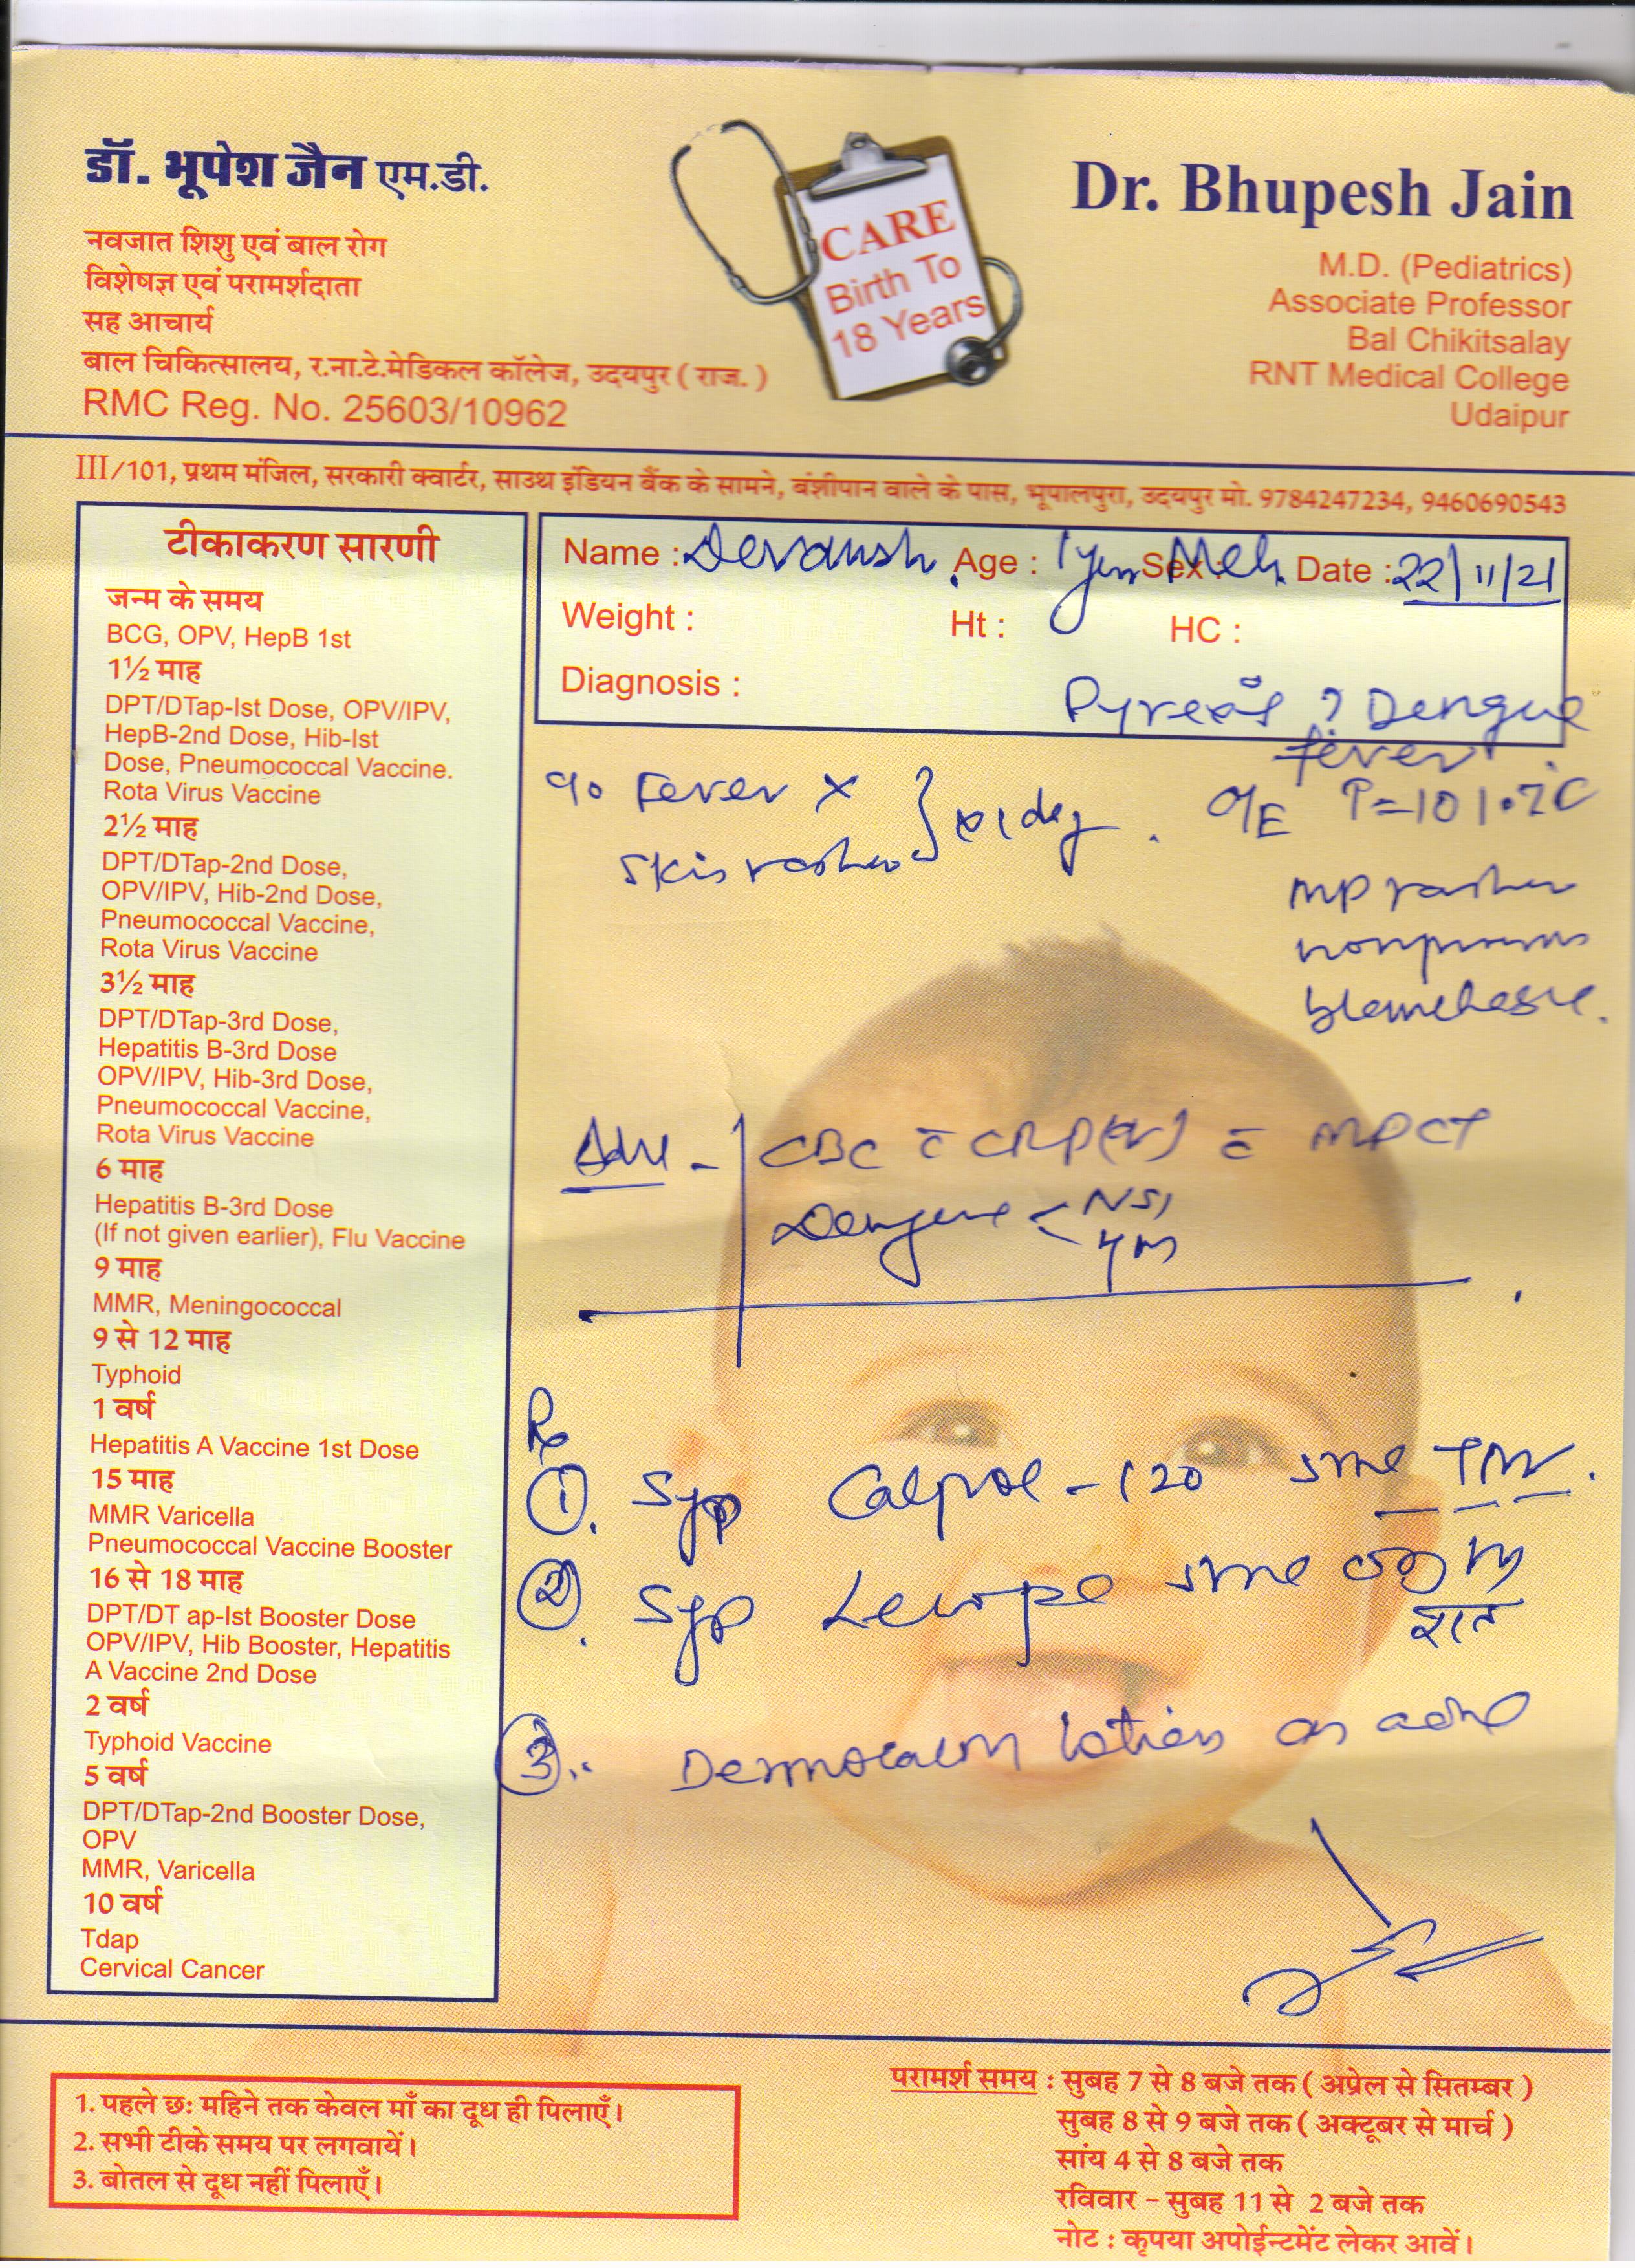 डॉ. भूपेश जैन एम.डी.
नवजात शिशु एवं बाल रोग
विशेषज्ञ एवं परामर्शदाता
सह आचार्य
बाल चिकित्सालय, र.ना.टे.मेडिकल कॉलेज, उदयपुर ( राज. )
RMC Reg. No. 25603/10962
CARE
Birth To
18 Years
Dr. Bhupesh Jain
M.D. (Pediatrics)
Associate Professor
Bal Chikitsalay
RNT Medical College
Udaipur
III/101, प्रथम मंजिल, सरकारी क्वार्टर, साउथ इंडियन बैंक के सामने, बंशीपान वाले के पास, भूपालपुरा, उदयपुर मो. 9784247234, 9460690543
टीकाकरण सारणी
जन्म के समय
BCG, OPV, HepB 1st
1½ माह
DPT/DTap-Ist Dose, OPV/IPV,
HepB-2nd Dose, Hib-Ist
Dose, Pneumococcal Vaccine.
Rota Virus Vaccine
2½ माह
DPT/DTap-2nd Dose,
OPV/IPV, Hib-2nd Dose,
Pneumococcal Vaccine,
Rota Virus Vaccine
3½ माह
DPT/DTap-3rd Dose,
Hepatitis B-3rd Dose
OPV/IPV, Hib-3rd Dose,
Pneumococcal Vaccine,
Rota Virus Vaccine
6 माह
Hepatitis B-3rd Dose
(If not given earlier), Flu Vaccine
9 माह
MMR, Meningococcal
9 से 12 माह
Typhoid
1 वर्ष
Hepatitis A Vaccine 1st Dose
15 माह
MMR Varicella
Pneumococcal Vaccine Booster
16 से 18 माह
DPT/DT ap-Ist Booster Dose
OPV/IPV, Hib Booster, Hepatitis
A Vaccine 2nd Dose
2 वर्ष
Typhoid Vaccine
5 वर्ष
DPT/DTap-2nd Booster Dose,
OPV
MMR, Varicella
10 वर्ष
Tdap
Cervical Cancer
Name : Devansh. Age : Sex : Date : 22/11/21
Weight : Ht : HC :
Diagnosis :
? Dengue
fever
c/o Fever x
skin rashes } x 1 day . O/E T=101.2°C
MP rashes
Adv - CBC c̄ CRP c̄ MPCT
Dengue < NS1
Rx
1. Syp Calpol - 120 5ml
2. Syp 5ml
रात
3. Dermocalm lotion
1. पहले छः महिने तक केवल माँ का दूध ही पिलाएँ।
2. सभी टीके समय पर लगवायें।
3. बोतल से दूध नहीं पिलाएँ।
परामर्श समय : सुबह 7 से 8 बजे तक ( अप्रेल से सितम्बर )
सुबह 8 से 9 बजे तक ( अक्टूबर से मार्च )
सांय 4 से 8 बजे तक
रविवार - सुबह 11 से 2 बजे तक
नोट : कृपया अपोईन्टमेंट लेकर आवें।